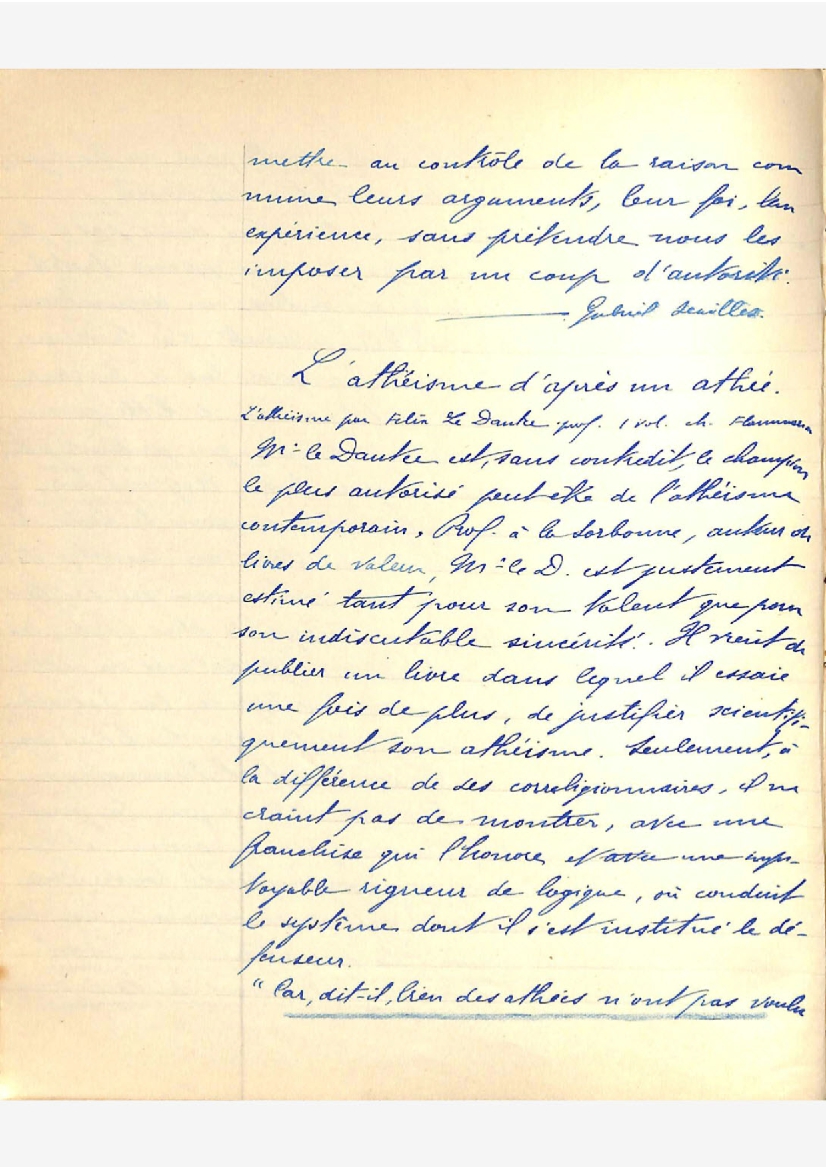 mettre au contrôle de la raison com
mune leurs arguments, leur foi, leur
expérience, sans prétendre nous les
imposer par un coup d'autorité.
Gabriel Seailles.
L'athéisme d'après un athée.
L'athéisme par Felix Le Dantec prof. 1 vol. ch. Flammarion
Mr. le Dantec est, sans contredit, le champion
le plus autorisé peut-être de l'athéisme
contemporain. Prof. à la Sorbonne, auteur de
livres de valeur, Mr. le D. est justement
estimé tant pour son talent que pour
son indiscutable sincérité. Il vient de
publier un livre dans lequel il essaie
une fois de plus, de justifier scientifi-
quement son athéisme. Seulement, à
la différence de ses correligionnaires, il ne
craint pas de montrer, avec une
franchise qui l'honore et avec une impi-
toyable rigueur de logique, où conduit
le système dont il s'est institué le dé-
fenseur.
"Car, dit-il, bien des athées n'ont pas voulu